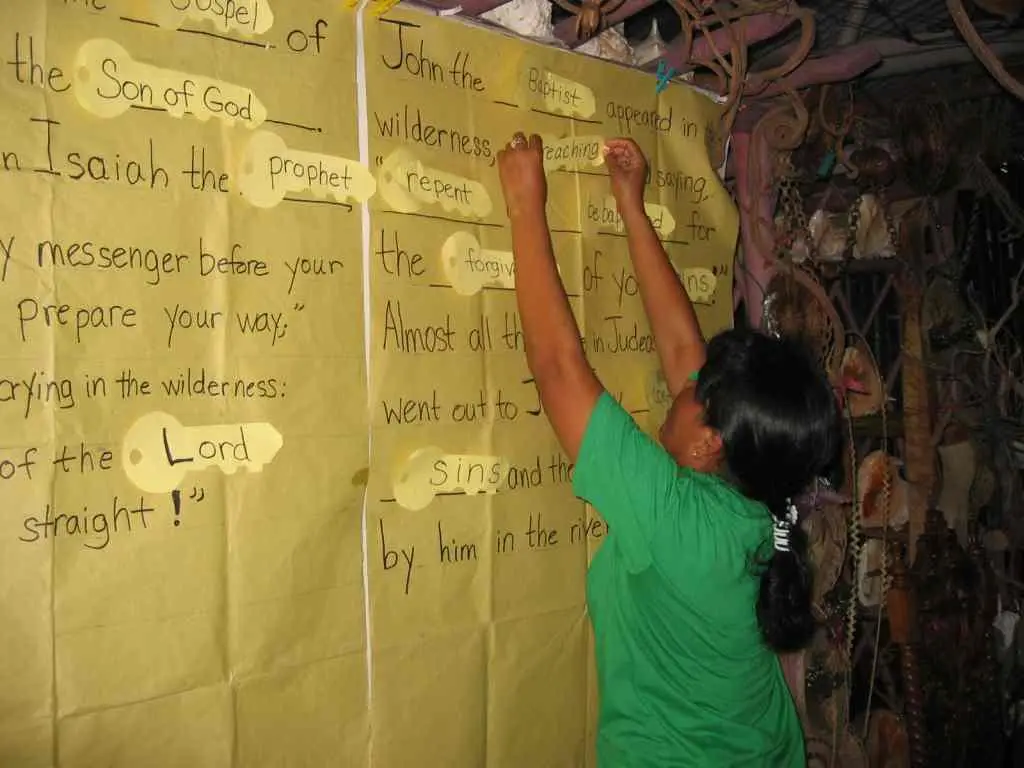 the Gospel of
the Son of God.
Isaiah the prophet,
messenger before your
Prepare your way,"
crying in the wilderness:
of the Lord
straight!"
John the Baptist appeared in
wilderness, reaching saying,
"repent for
the of
Almost all in
went out to
sins and
by him in the